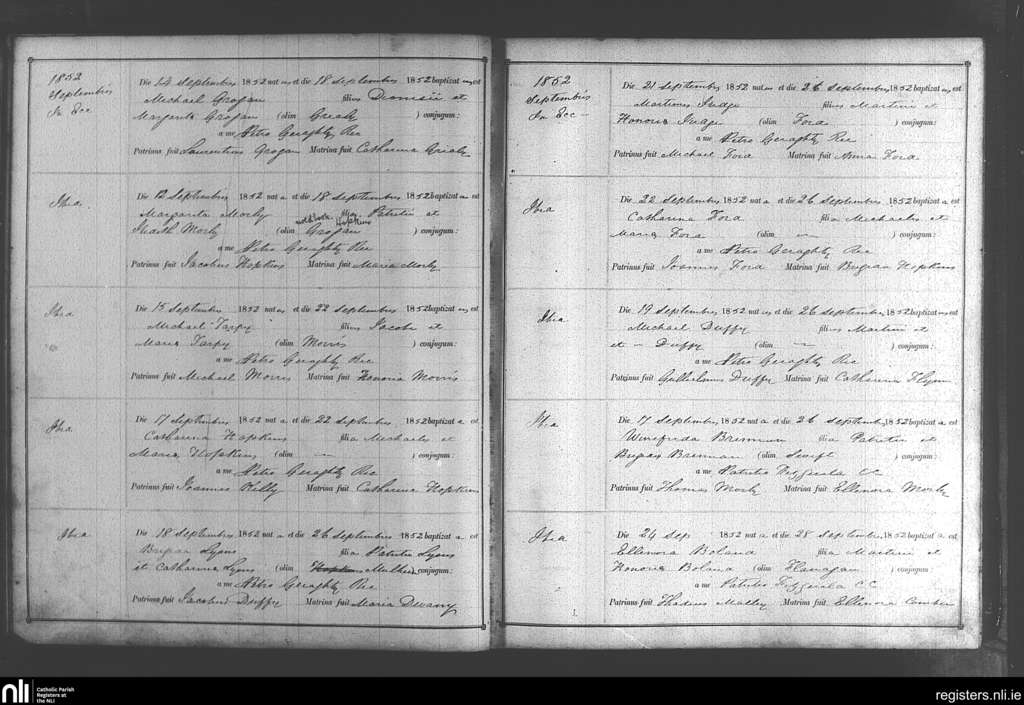 1852
Septembris
In Ecc
Die 14 Septembris 1852 nat us et die 18 Septembris 1852 baptizat us est
Michael Grogan filius Dionisii et
Margarita Grogan (olim Grealy ) conjugum:
a me Petro Geraghty Rec
Patrinus fuit Laurentius Grogan Matrina fuit Catharina Grealy
Ibia
Die 12 Septembris 1852 nat a et die 18 Septembris 1852 baptizat a est
Margarita Morly filia Patritii et
Judith Morly (olim Grogan Hopkins ) conjugum:
a me Petro Geraghty Rec
Patrinus fuit Jacobus Hopkins Matrina fuit Maria Morly
Ibia
Die 15 Septembris 1852 nat us et die 22 Septembris 1852 baptizat us est
Michael Tarpy filius Jacobi et
Maria Tarpy (olim Morris ) conjugum:
a me Petro Geraghty Rec
Patrinus fuit Michael Morris Matrina fuit Honoria Morris
Ibia
Die 17 Septembris 1852 nat a et die 22 Septembris 1852 baptizat a est
Catharina Hopkins filia Michaelis et
Maria Hopkins (olim — ) conjugum:
a me Petro Geraghty Rec
Patrinus fuit Joannes Kelly Matrina fuit Catharina Hopkins
Ibia
Die 18 Septembris 1852 nat a et die 26 Septembris 1852 baptizat a est
Lyons filia Patritii Lyons
et Catharina Lyons (olim Hopkins ) conjugum:
a me Petro Geraghty Rec
Patrinus fuit Jacobus Duffy Matrina fuit Maria Devany
1852
Septembris
In Ecc —
Die 21 Septembris 1852 nat us et die 26 Septembris 1852 baptizat us est
Martinus Judge filius Martini et
Honoria Judge (olim Ford ) conjugum:
a me Petro Geraghty Rec
Patrinus fuit Michael Ford Matrina fuit Anna Ford
Ibia
Die 22 Septembris 1852 nat a et die 26 Septembris 1852 baptizat a est
Catharina Ford filia Michaelis et
Maria Ford (olim — ) conjugum:
a me Petro Geraghty Rec
Patrinus fuit Joannes Ford Matrina fuit Hopkins
Ibia
Die 19 Septembris 1852 nat us et die 26 Septembris 1852 baptizat us est
Michael Duffy filius Martini et
et — Duffy (olim — ) conjugum:
a me Petro Geraghty Rec
Patrinus fuit Gullielmus Duffy Matrina fuit Catharina Flynn
Ibia
Die 17 Septembris 1852 nat a et die 26 Septembris 1852 baptizat a est
Winefrida Brennan filia Patritii et
Brennan (olim Swift ) conjugum:
a me Patritio C C
Patrinus fuit Thomas Morly Matrina fuit Ellenora Morly
Ibia
Die 24 Sep 1852 nat a et die 28 Septembris 1852 baptizat a est
Ellenora Boland filia Martini et
Honoria Boland (olim Flanagan ) conjugum:
a me Patritio C C
Patrinus fuit Thadeus Malley Matrina fuit Ellenora Comber
nli Catholic Parish
Registers at
the NLI
registers.nli.ie